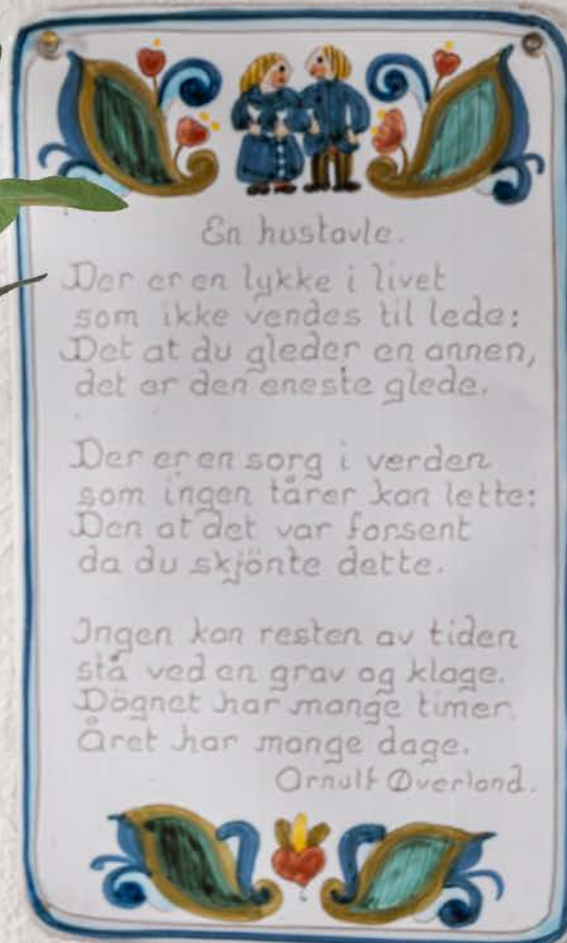 En hustavle.
Der er en lykke i livet
som ikke vendes til lede:
Det at du gleder en annen,
det er den eneste glede.
Der er en sorg i verden
som ingen tårer kan lette:
Den at det var forsent
da du skjönte dette.
Ingen kan resten av tiden
stå ved en grav og klage.
Dögnet har mange timer.
Året har mange dage.
Arnulf Øverland.